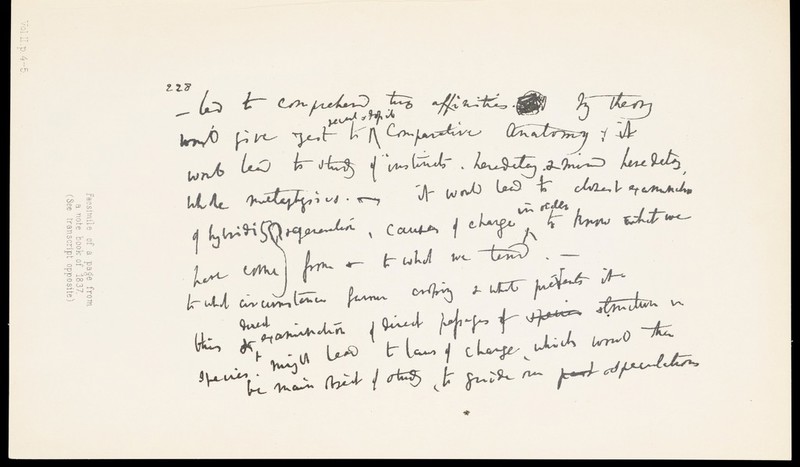 Vol II p 4-5
228
— led to comprehend true affinities. My theory
would give zest to recent & fossil Comparative Anatomy, & it
would lead to study of instincts. heredetary & mind heredetary,
whole metaphysics. — it would lead to closest examination
of hybridity, regeneration, causes of change in order to know what we
have come from & to what we tend. —
to what circumstances favour crossing & what prevents it —
this & direct examination of direct passages of species structure in
species. might lead to laws of change, which would then
be main object of study, to guide our past speculations
Facsimile of a page from
a note book of 1837.
(See transcript opposite)